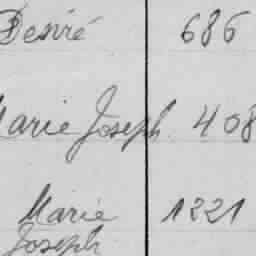 Desiré 686
Marie Joseph 408
Marie 1221
Joseph